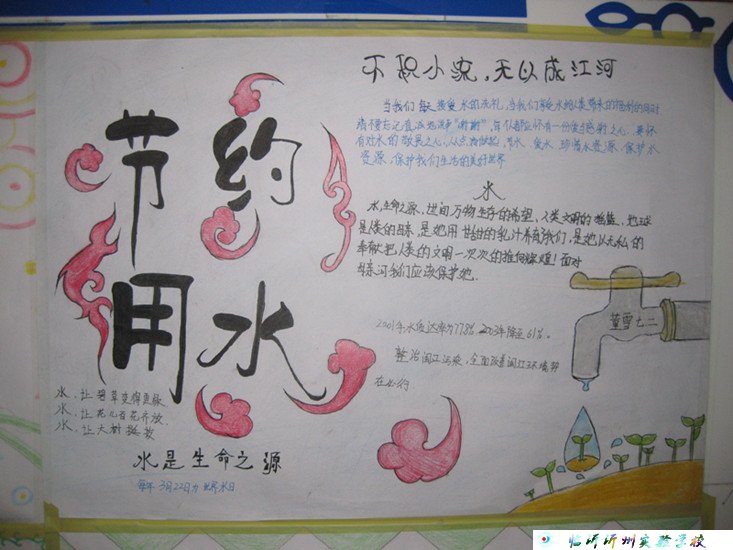 节约
用水
不积小流,无以成江河
当我们每天接受水的洗礼,当我们享受水给人类带来的
请不要忘记真诚地说声“谢谢”,每个人都应怀有一份
有对水的敬畏之心,从点滴做起,节水、爱水、珍惜水资源、保护水
资源,保护我们生活的美好世界
水
水,生命之源,世间万物生存的希望,人类文明的摇篮,地球
是人类的母亲,是她用甘甜的乳汁养育我们,是她以无私的
奉献把人类的文明一次次的推向辉煌!面对
母亲河我们应该保护她.
董雪七二
2001年水质达标率为77.8%,2003年降至61%。
整治闽江污染,全面改善闽江环境势
在必行
水,让碧草变得更绿
水,让花儿百花齐放
水,让大树挺拔
水是生命之源
每年3月22日为世界水日
临沂沂州实验学校